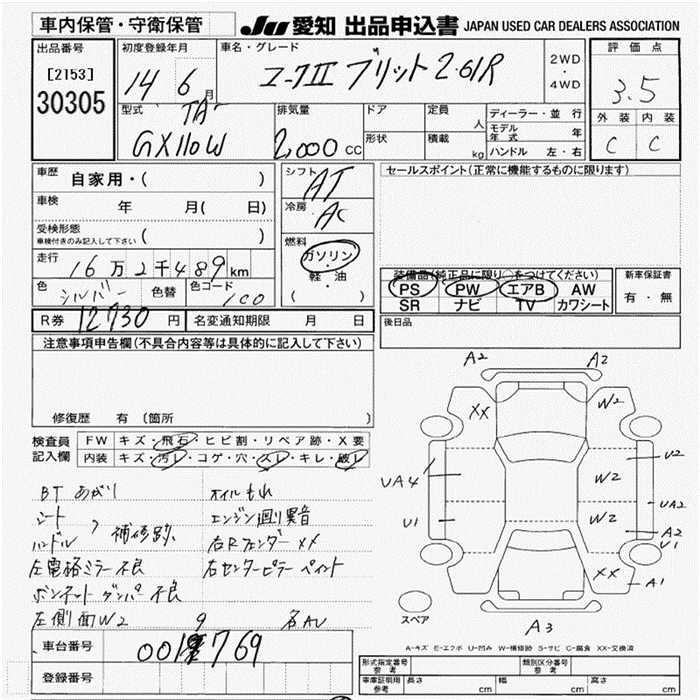 車内保管・守衛保管
JU 愛知 出品申込書 JAPAN USED CAR DEALERS ASSOCIATION
出品番号
[2153]
30305
初度登録年月
14 6 月
車名・グレード
マークⅡ ブリット 2.0iR
2WD
・
4WD
評価点
3.5
外装 内装
C C
型式
TA-
GX110W
排気量
2,000 CC
ドア
形状
定員 人
積載 kg
ディーラー・並行
モデル年式 年
ハンドル 左・右
車歴 自家用・( )
車検 年 月( 日)
受検形態
車検付きのみ記入して下さい ( )
走行 16万2千489km
色 シルバー 色替 色コード 1C0
R券 12730 円 名変通知期限 月 日
シフト AT
冷房 AC
燃料
ガソリン
・
軽・油
( )
セールスポイント(正常に機能するものに限ります)
装備品(純正品に限り○をつけてください)
PS PW エアB AW
SR ナビ TV カワシート
新車保証書
有・無
後日品
注意事項申告欄(不具合内容等は具体的に記入して下さい)
修復歴 有 (箇所 )
検査員記入欄
FW キズ・飛石・ヒビ割・リペア跡・X要
内装 キズ・汚レ・コゲ・穴・スレ・キレ・破レ
BT あがり
シート
ハンドル 〉 補修跡
左電格ミラー不良
ボンネットダンパ不良
左側面W2
オイルもれ
エンジン廻り異音
右Rフェンダー XX
右センターピラー ペイント
9
名AU
車台番号 769
登録番号
A2 A2
XX W2
UA4 W2 U2
U1 W2 UA2
A2
U1
XX A1
スペア
A3
A-キズ E-エクボ U-凹み W-補修跡 S-サビ C-腐食 XX-交換済
形式指定番号 参考 類別区分番号 参考
車庫証明用 参考 長さ cm 幅 cm 高さ cm